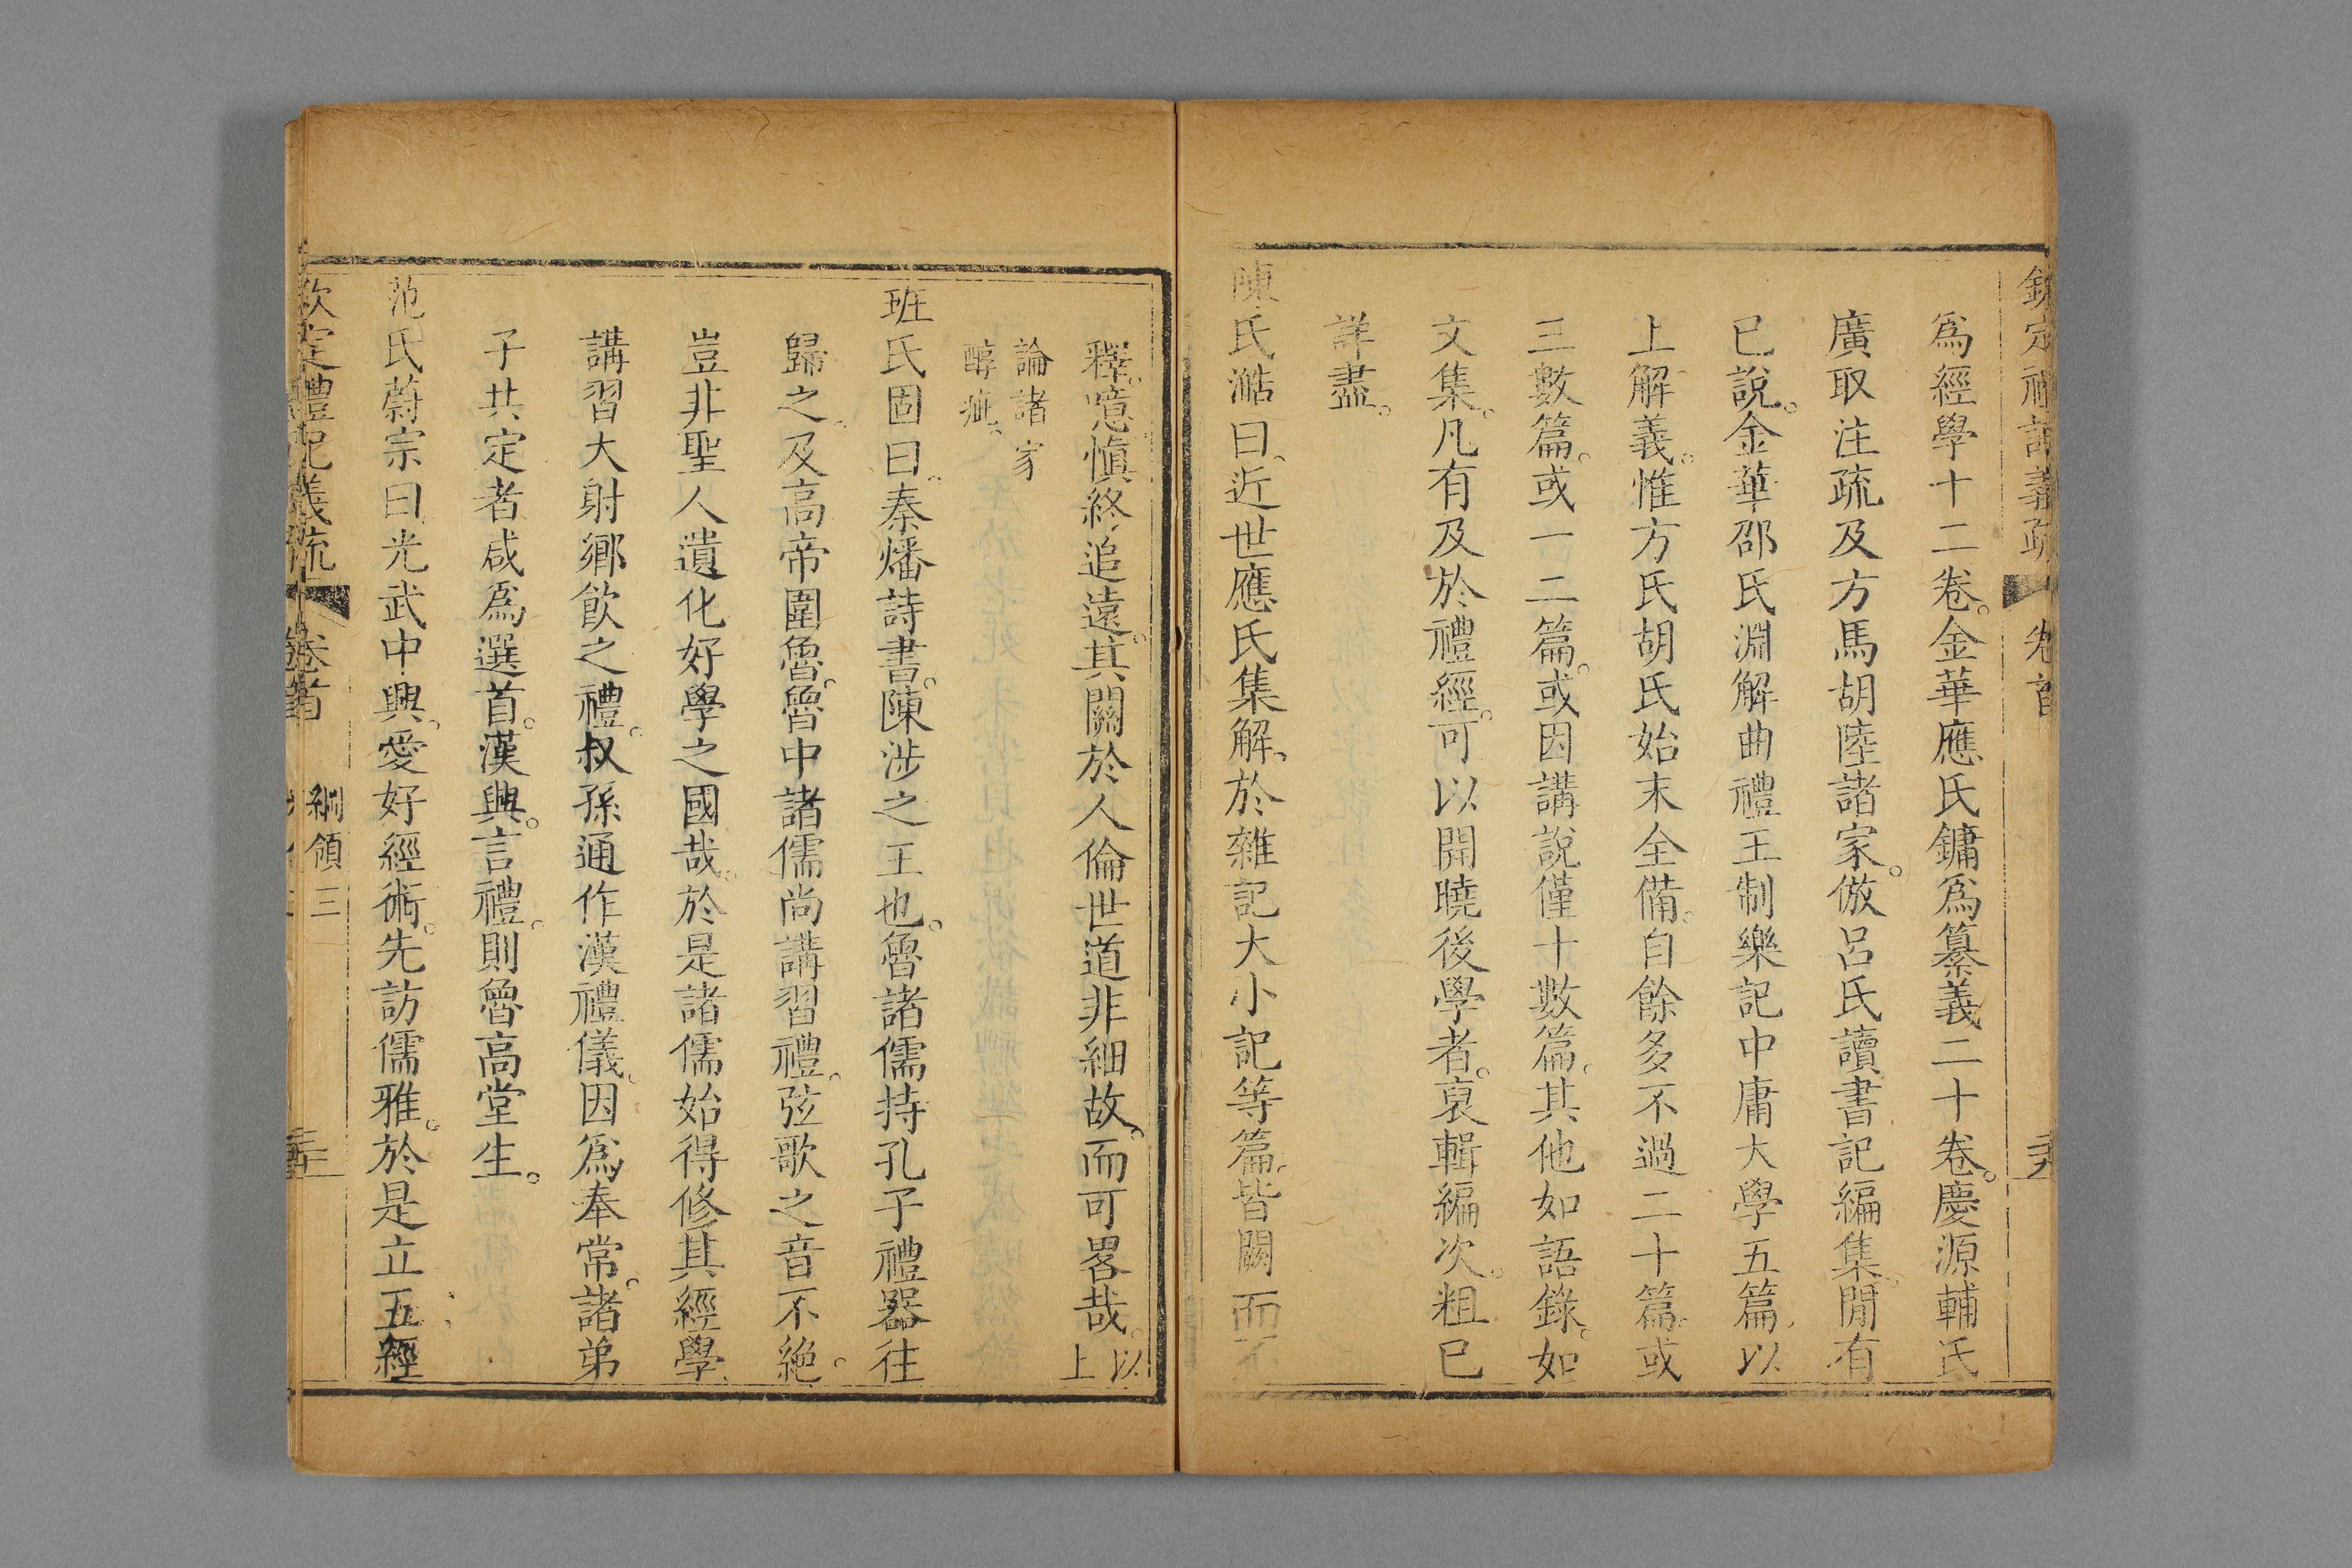 欽定禮記義疏 卷首
爲經學十二卷。金華應氏鏞爲纂義二十卷。慶源輔氏
廣取注疏及方馬胡陸諸家。倣呂氏讀書記編集。閒有
已說。金華邵氏淵解曲禮王制樂記中庸大學五篇。以
上解義。惟方氏胡氏始末全備。自餘多不過二十篇。或
三數篇。或一二篇。或因講說僅十數篇。其他如語錄。如
文集。凡有及於禮經。可以開曉後學者。裒輯編次。粗已
詳盡。
陳氏澔曰。近世應氏集解。於雜記大小記等篇。皆闕而不
釋。噫。愼終追遠。其關於人倫世道非細故。而可畧哉。以上
論諸家
醇疵。
班氏固曰。秦燔詩書。陳涉之王也。魯諸儒持孔子禮器往
歸之。及高帝圍魯。魯中諸儒尚講習禮。弦歌之音不絶。
豈非聖人遺化好學之國哉。於是諸儒始得修其經學
講習大射鄉飮之禮。叔孫通作漢禮儀。因爲奉常。諸弟
子共定者咸爲選首。漢興。言禮。則魯高堂生。
范氏蔚宗曰。光武中興。愛好經術。先訪儒雅。於是立五經
欽定禮記義疏 卷首 綱領三